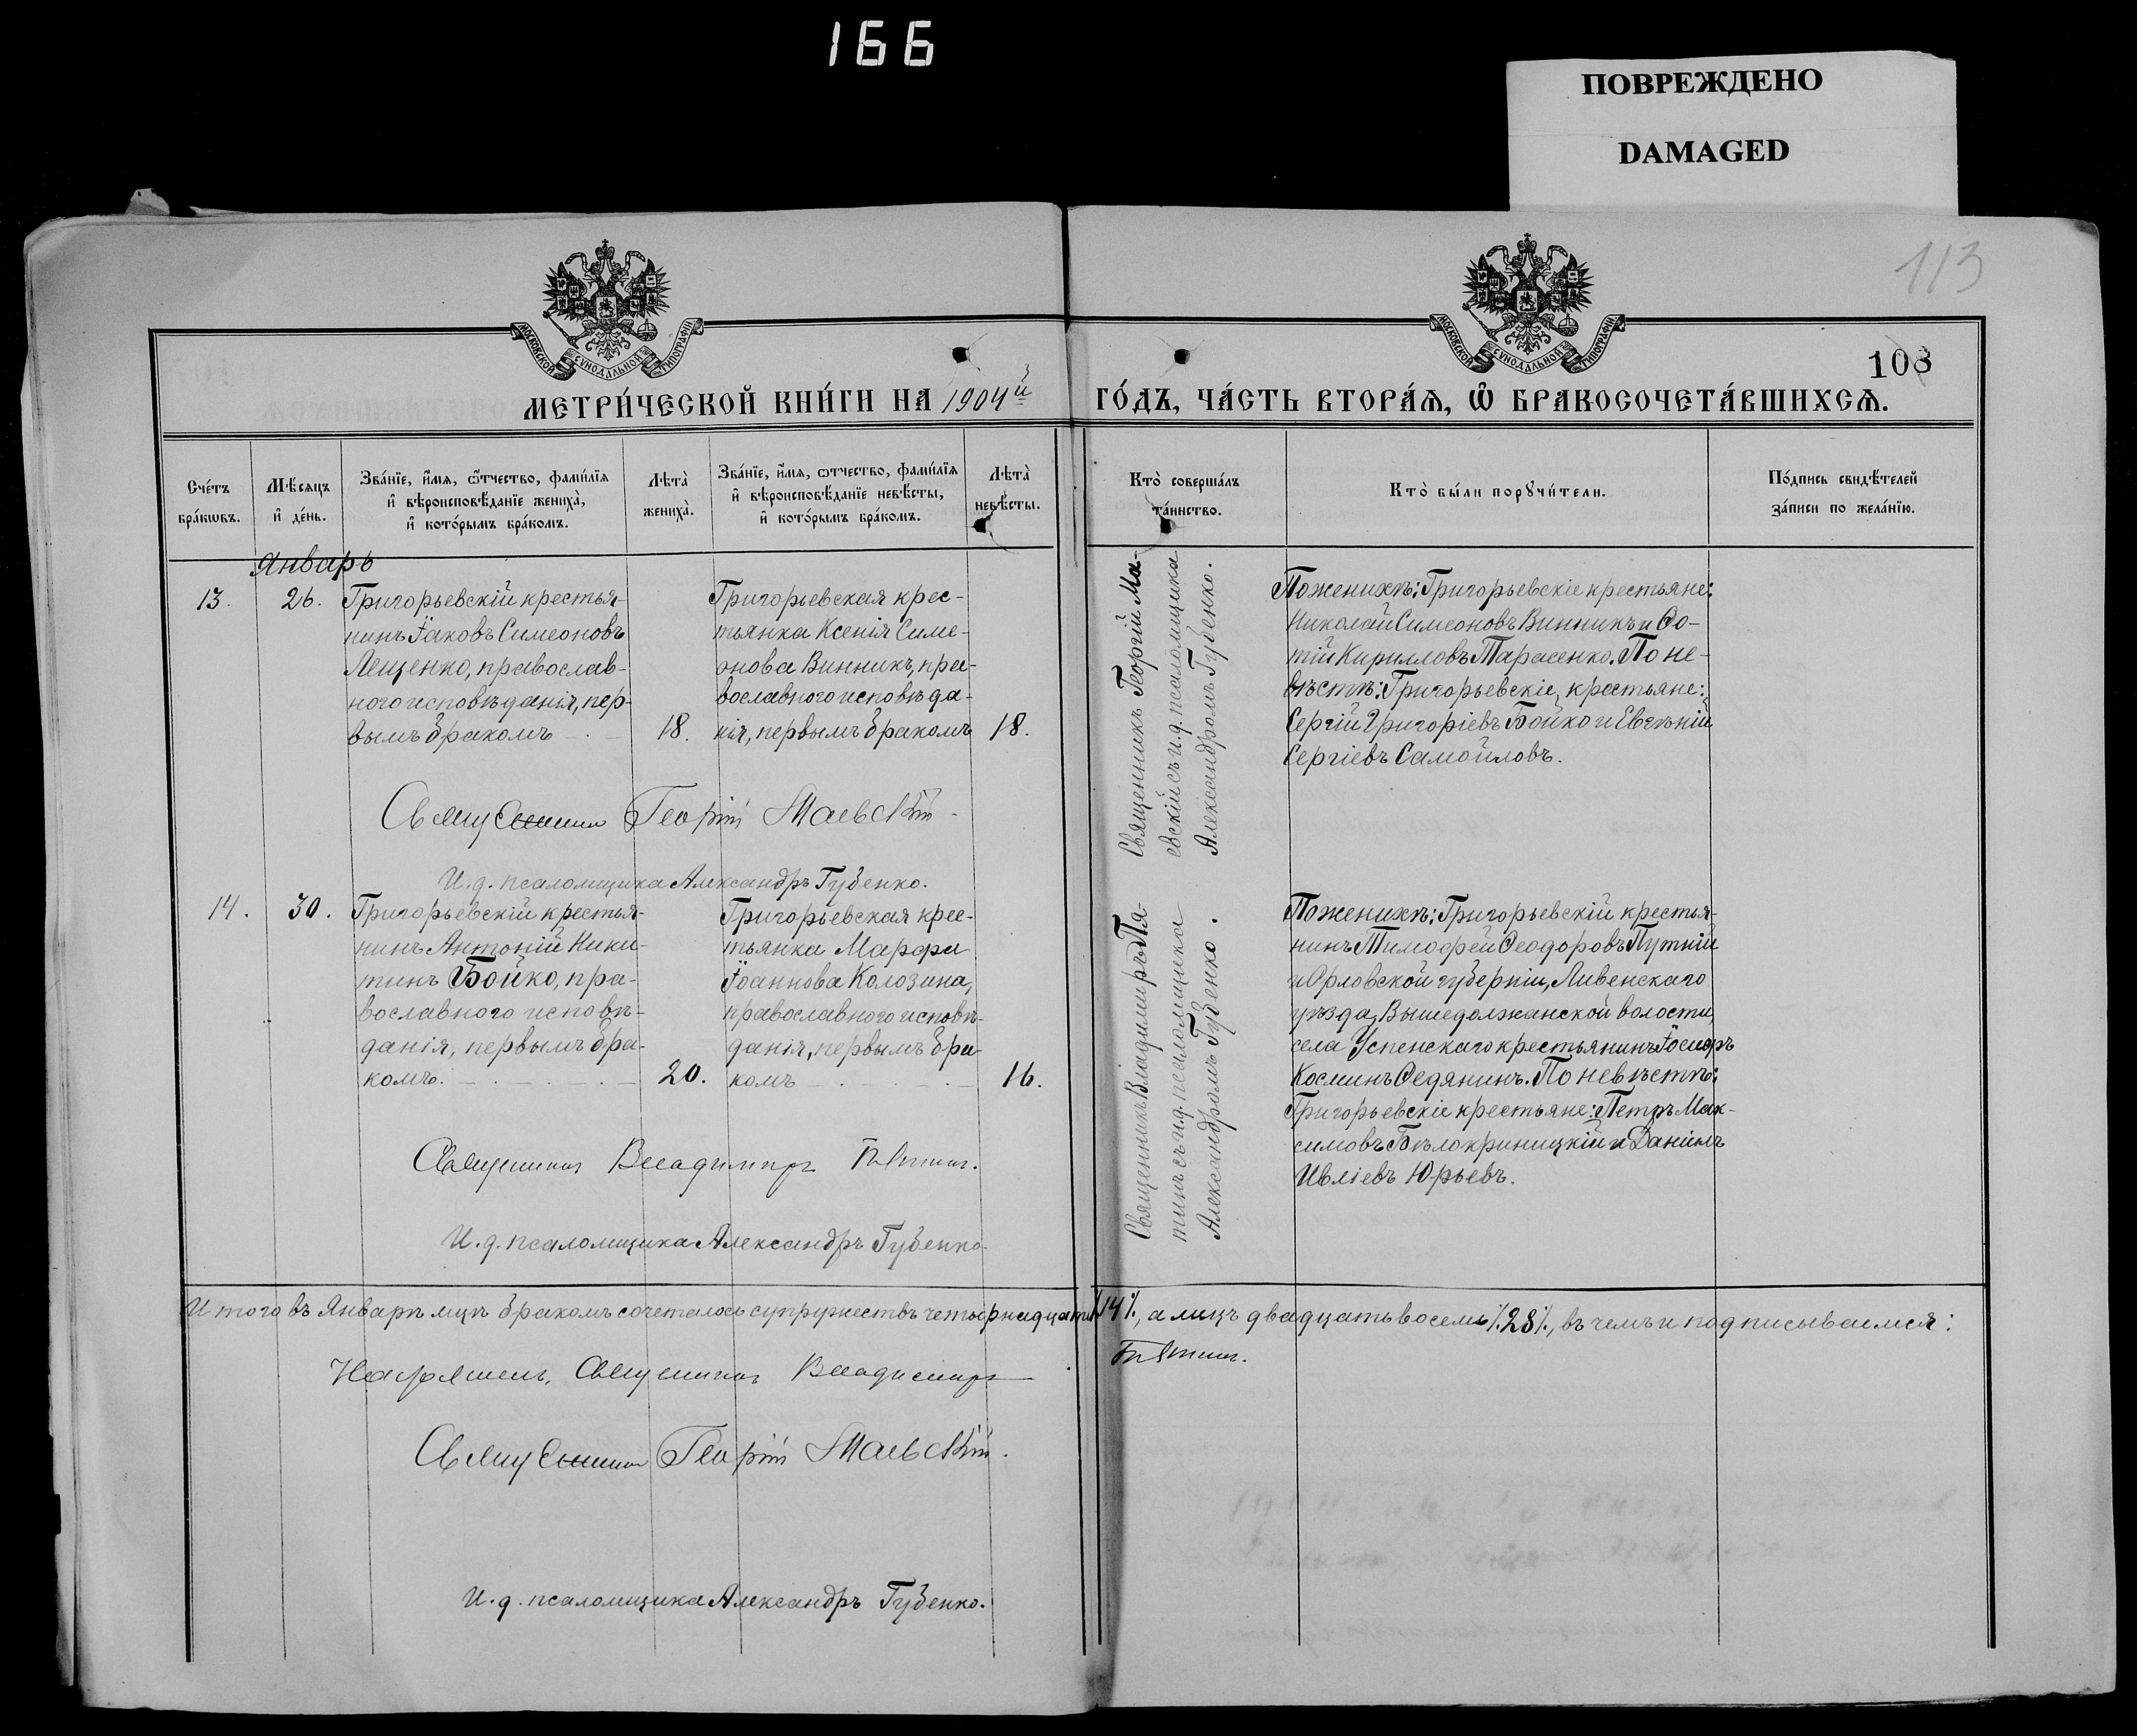 166
ПОВРЕЖДЕНО
DAMAGED
113
МОСКОВСКОЙ СѴНОДАЛЬНОЙ ТИПОГРАФІИ
МОСКОВСКОЙ СѴНОДАЛЬНОЙ ТИПОГРАФІИ
108
МЕТРИ́ЧЕСКОЙ КНИ́ГИ НА 1904й ГО́ДЪ, ЧА́СТЬ ВТОРА́Ѧ, Ѽ БРАКОСОЧЕТА́ВШИХСѦ.
Сче́тъ
бра́кωвъ.
Мѣ́сяцъ
и҆ де́нь.
Зва́нїе, и҆́мя, ѻ҆́тчество, фами́лїя
и҆ вѣроисповѣ́данїе жениха̀,
и҆ кото́рымъ бра́комъ.
Лѣта̀
жениха̀.
Зва́нїе, и҆́мя, ѻ҆́тчество, фами́лїя
и҆ вѣроисповѣ́данїе невѣ́сты,
и҆ кото́рымъ бра́комъ.
Лѣта̀
невѣ́сты.
Кто̀ соверша́лъ
та́инство.
Кто̀ бы́ли порꙋчи́тели.
По́дпись свидѣ́телей
за́писи по жела́нїю.
Январь
13.
26.
Григорьевскій крестья-
нинъ Іаковъ Симеоновъ
Лещенко, православ-
ного исповѣданія, пер-
вымъ бракомъ
18.
Григорьевская крес-
тьянка Ксенія Симе-
онова Винникъ, пра-
вославного исповѣда-
нія, первымъ бракомъ
18.
Священникъ Георгій Ма-
евскій съ и.д. псаломщика
Александромъ Губенко.
По женихѣ: Григорьевскіе крестьяне:
Николай Симеоновъ Винникъ и Фо-
тій Кирилловъ Тарасенко. По не-
вѣстѣ: Григорьевскіе, крестьяне:
Сергій Григоріевъ Бойко и Евгеній
Сергіевъ Самойловъ.
Священникъ Георгій Маевскій.
И. д. псаломщика Александръ Губенко.
14.
30.
Григорьевскій крестья-
нинъ Антоній Ники-
тинъ Бойко, пра-
вославного исповѣ-
данія, первымъ бра-
комъ.
20.
Григорьевская крес-
тьянка Марфа
Іоаннова Колозина,
православного исповѣ-
данія, первымъ бра-
комъ
16.
Священникъ Владимиръ Пя-
тинъ съ и.д. псаломщика
Александромъ Губенко.
По женихѣ: Григорьевскій крестья-
нинъ Тимофей Феодоровъ Путній
и Орловской губерніи, Ливенскаго
уѣзда, Вышедолжанской волости,
села Успенскаго крестьянинъ Іосифъ
Косминъ Федянинъ. По невѣстѣ:
Григорьевскіе крестьяне: Петръ Мак-
симовъ Бѣлокриницкій и Даніилъ
Ивліевъ Юрьевъ.
Священникъ Владимиръ Пятинъ.
И. д. псаломщика Александръ Губенко.
Итого въ Январѣ мцѣ бракомъ сочеталось супружествъ четырнадцать /.14./, а лицъ двадцать восемь /.28./, въ чемъ и подписываемся:
Священникъ Владимиръ Пятинъ.
Священникъ Георгій Маевскій.
И. д. псаломщика Александръ Губенко.